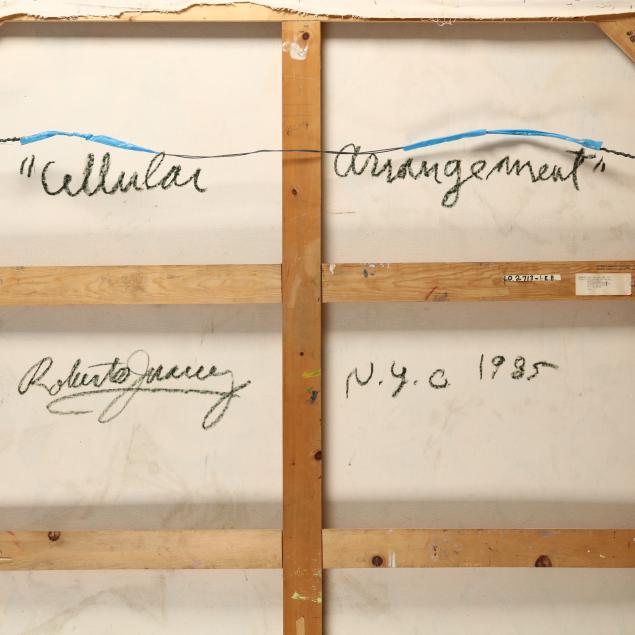 "Cellular Arrangement"
Roberto Juarez N.Y.C 1985